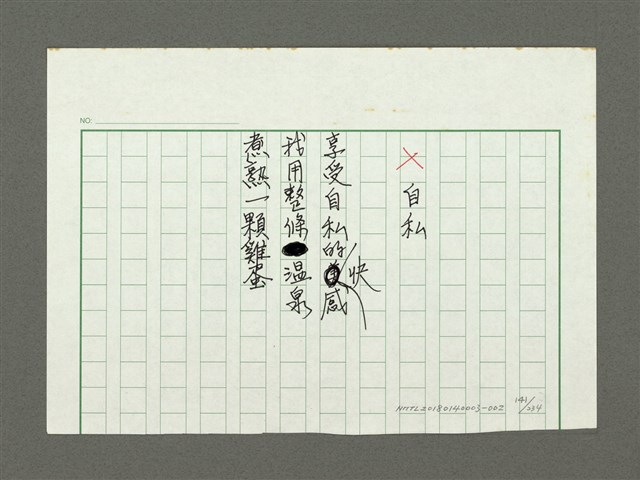 NO:
╳ 自私
享受自私的快感
我用整條溫泉
煮熟一顆雞蛋
NMTL20180140003-002
141/234